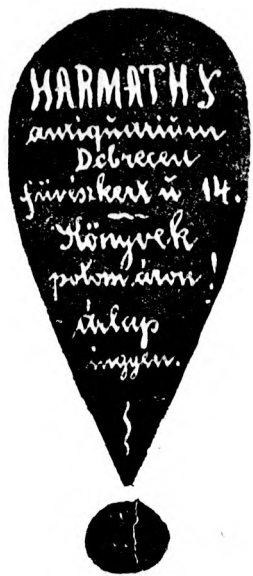 HARMATHY
antiquárium
Debrecen
füvészkert u 14.
Könyvek
potom áron!
Űrlap
ingyen.